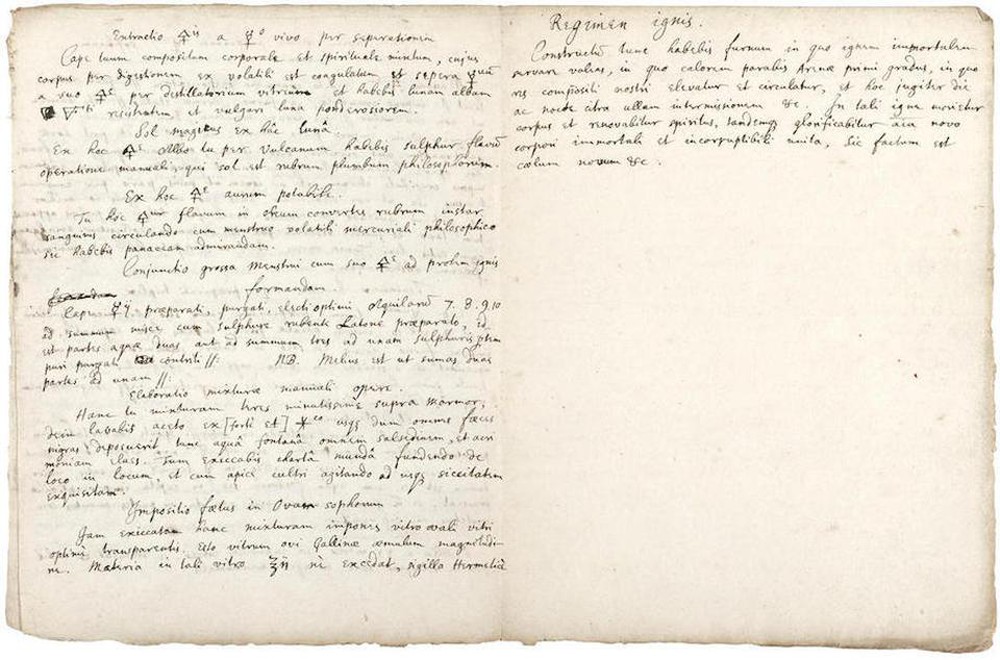 Extractio 🜍is a ☿o vivo per separationem
Cape tuum compositum corporale et spirituale mixtum, cujus
corpus per digestionem ex volatili est coagulatum et separa ☿um
a suo 🜍e per destillatorium vitrium et habebis lunam albam
resistentem et vulgari luna ponderosiorem.
Sol magicus ex hâc lunâ.
Ex hoc 🜍e Albo tu per Vulcanum habebis sulphur flavū
operatione manuali, qui sol est rubrum plumbum philosophorum.
Ex hoc 🜍e aurum potabile.
Tu hoc 🜍ur flavum in oleum convertes rubrum instar
sanguinis circulando cum menstruo volatili mercuriali philosophico
sic habebis panaceam admirandam.
Conjunctio grossa Menstrui cum suo 🜍e ad prolem ignis
formandam
Cape ☿ij præparati, purgati, electi optimi Aquilarū 7. 8. 9 10
ad summum misce cum sulphure rubente Latone præparato, id
est partes aquæ duas aut ad summum tres ad unam sulphuris ptem
puri purgati contriti //: NB. Melius est ut sumas duas
partes ad unam //:
Elaboratio mixturæ manuali opere.
Hanc tu mixturam teres minutissime supra marmor,
dein lavabis aceto ex [forti et] 🜹co usqꝫ dum omnes fæces
nigras deposuerit tunc aquâ fontanâ omnem salsedinem, et acri
moniam elues. Tum exiccabis chartâ mundâ fundendo de
loco in locum, et cum apice cultri agitando ad usqꝫ siccitatem
exquisitam.
Impositio fœtus in Ovum sophorum
Jam exiccatam hanc mixturam impones vitro ovali vitri
optimi transparentis. Esto vitrum ovi Gallinæ æmulum magnitudi
ne. Materia in tali vitro ℥ij ne excedat, sigillo Hermetico
Regimen ignis.
Constructū tunc habebis furnum in quo ignem immortalem
servare valeas, in quo calorem parabis Arenæ primi gradus, in quo
ros compositi nostri elevatur et circulatur, et hoc jugiter die
ac nocte citra ullam intermissionem &c. In tali igne morietur
corpus et renovabitur spiritus, tandemqꝫ glorificabitur aīa novo
corpori immortali et incorruptibili unita, sic factum est
cœlum novum &c.